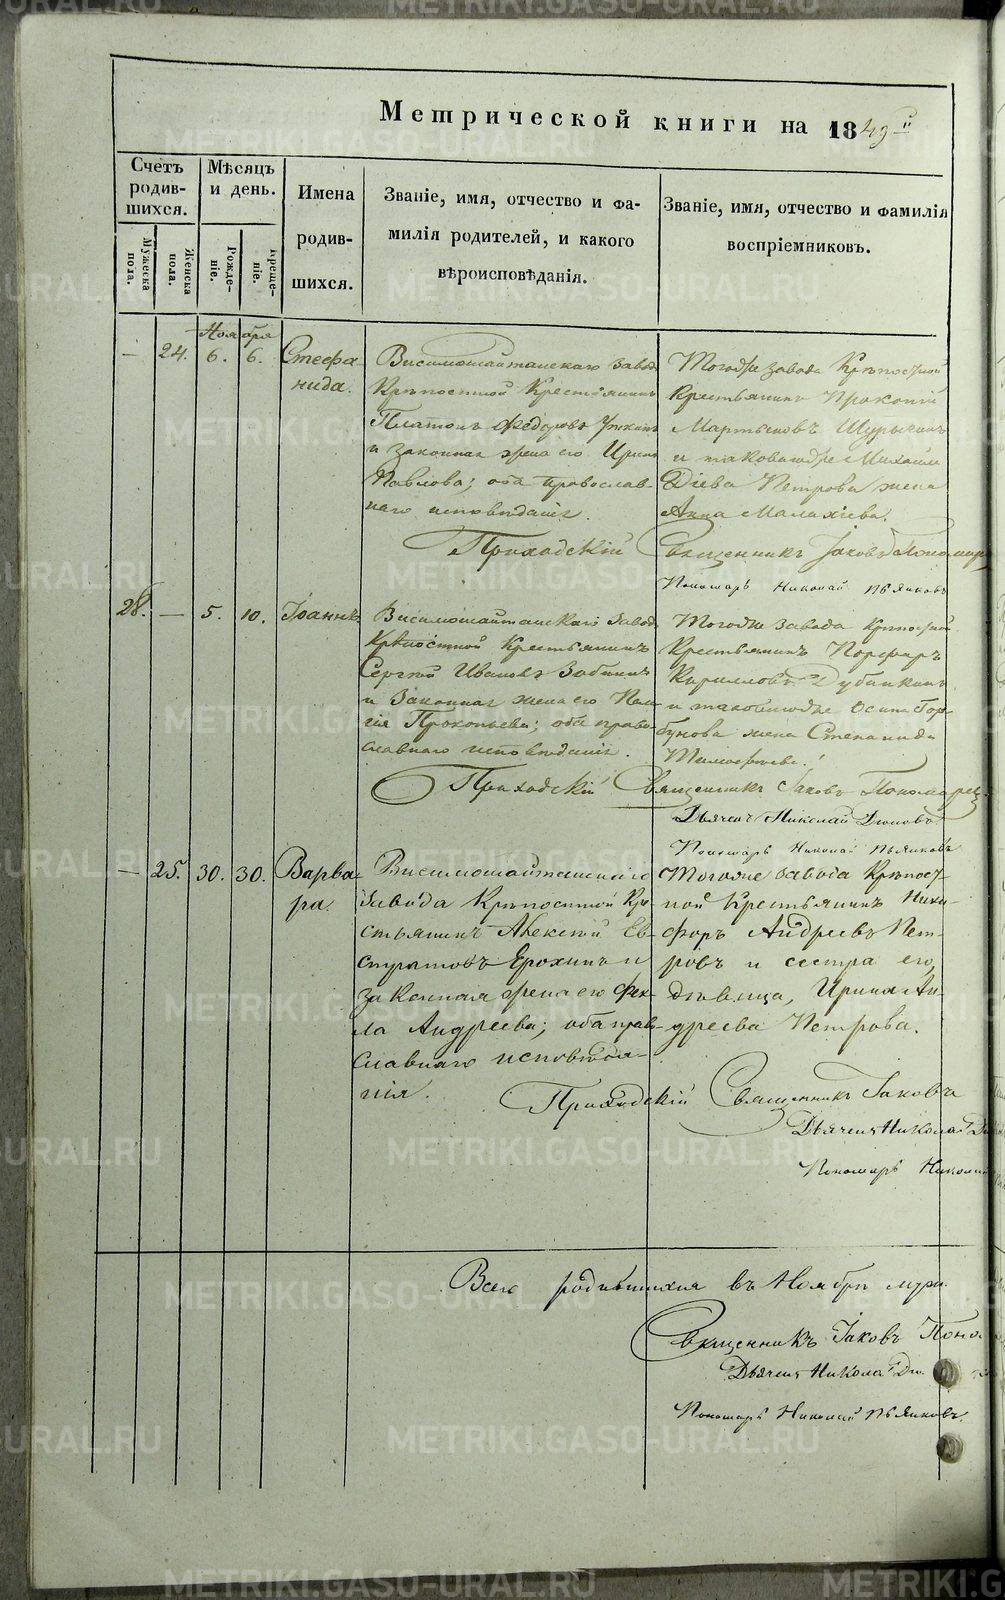 Метрической книги на 1849й
Счетъ родив-шихся.
Мужеска пола.
Женска пола.
Мѣсяцъ и день.
Рожде-ніе.
Креще-ніе.
Имена родив-шихся.
Званіе, имя, отчество и фа-
милія родителей, и какого
вѣроисповѣданія.
Званіе, имя, отчество и фамилія
воспріемниковъ.
Ноября
— 24. 6. 6. Стефа-
нида.
Висимошайтанскаго завода
Крѣпостной Крестьянинъ
Платонъ Федоровъ
и законная жена его Ирина
Павлова; оба православ-
наго исповѣданія.
Тогоже завода Крѣпостной
Крестьянинъ Прокопій
Мартыновъ
и таковагоже Михаила
Діева Петрова жена
Анна Малахіева.
Приходскій Священникъ Іаковъ Пономар
Пономарь Николай
28. — 5. 10. Іоаннъ
Висимошайтанскаго завода
Крѣпостной Крестьянинъ
Сергій Ивановъ
и Законная жена его Пела-
гія Прокопьева; оба право-
славнаго исповѣданія.
Тогоже завода Крѣпостной
Крестьянинъ Порфиръ
Кирилловъ
и таковагоже Осипа Гор-
бунова жена Степанида
Тимофѣева.
Приходскій Священникъ Іаковъ Пономарев
Дьячекъ Николай
Пономарь Николай
— 25. 30. 30. Варва-
ра.
Висимошайтанскаго
Завода Крѣпостной Кре-
стьянинъ Алексій Ев-
стратовъ Ерохинъ и
законная жена его Фек-
ла Андреева; оба право-
славнаго исповѣда-
нія.
Тогоже завода Крѣпост-
ной Крестьянинъ Ники-
форъ Андреевъ Пет-
ровъ и сестра его,
дѣвица, Ирина Ан-
дреева Петрова.
Приходскій Священникъ Іаковъ
Дьячекъ Николай
Пономарь Николай
Всего родившихся въ Ноябрѣ
Священникъ Іаковъ Поно
Дьячекъ Николай
Пономарь Николай
METRIKI.GASO-URAL.RU